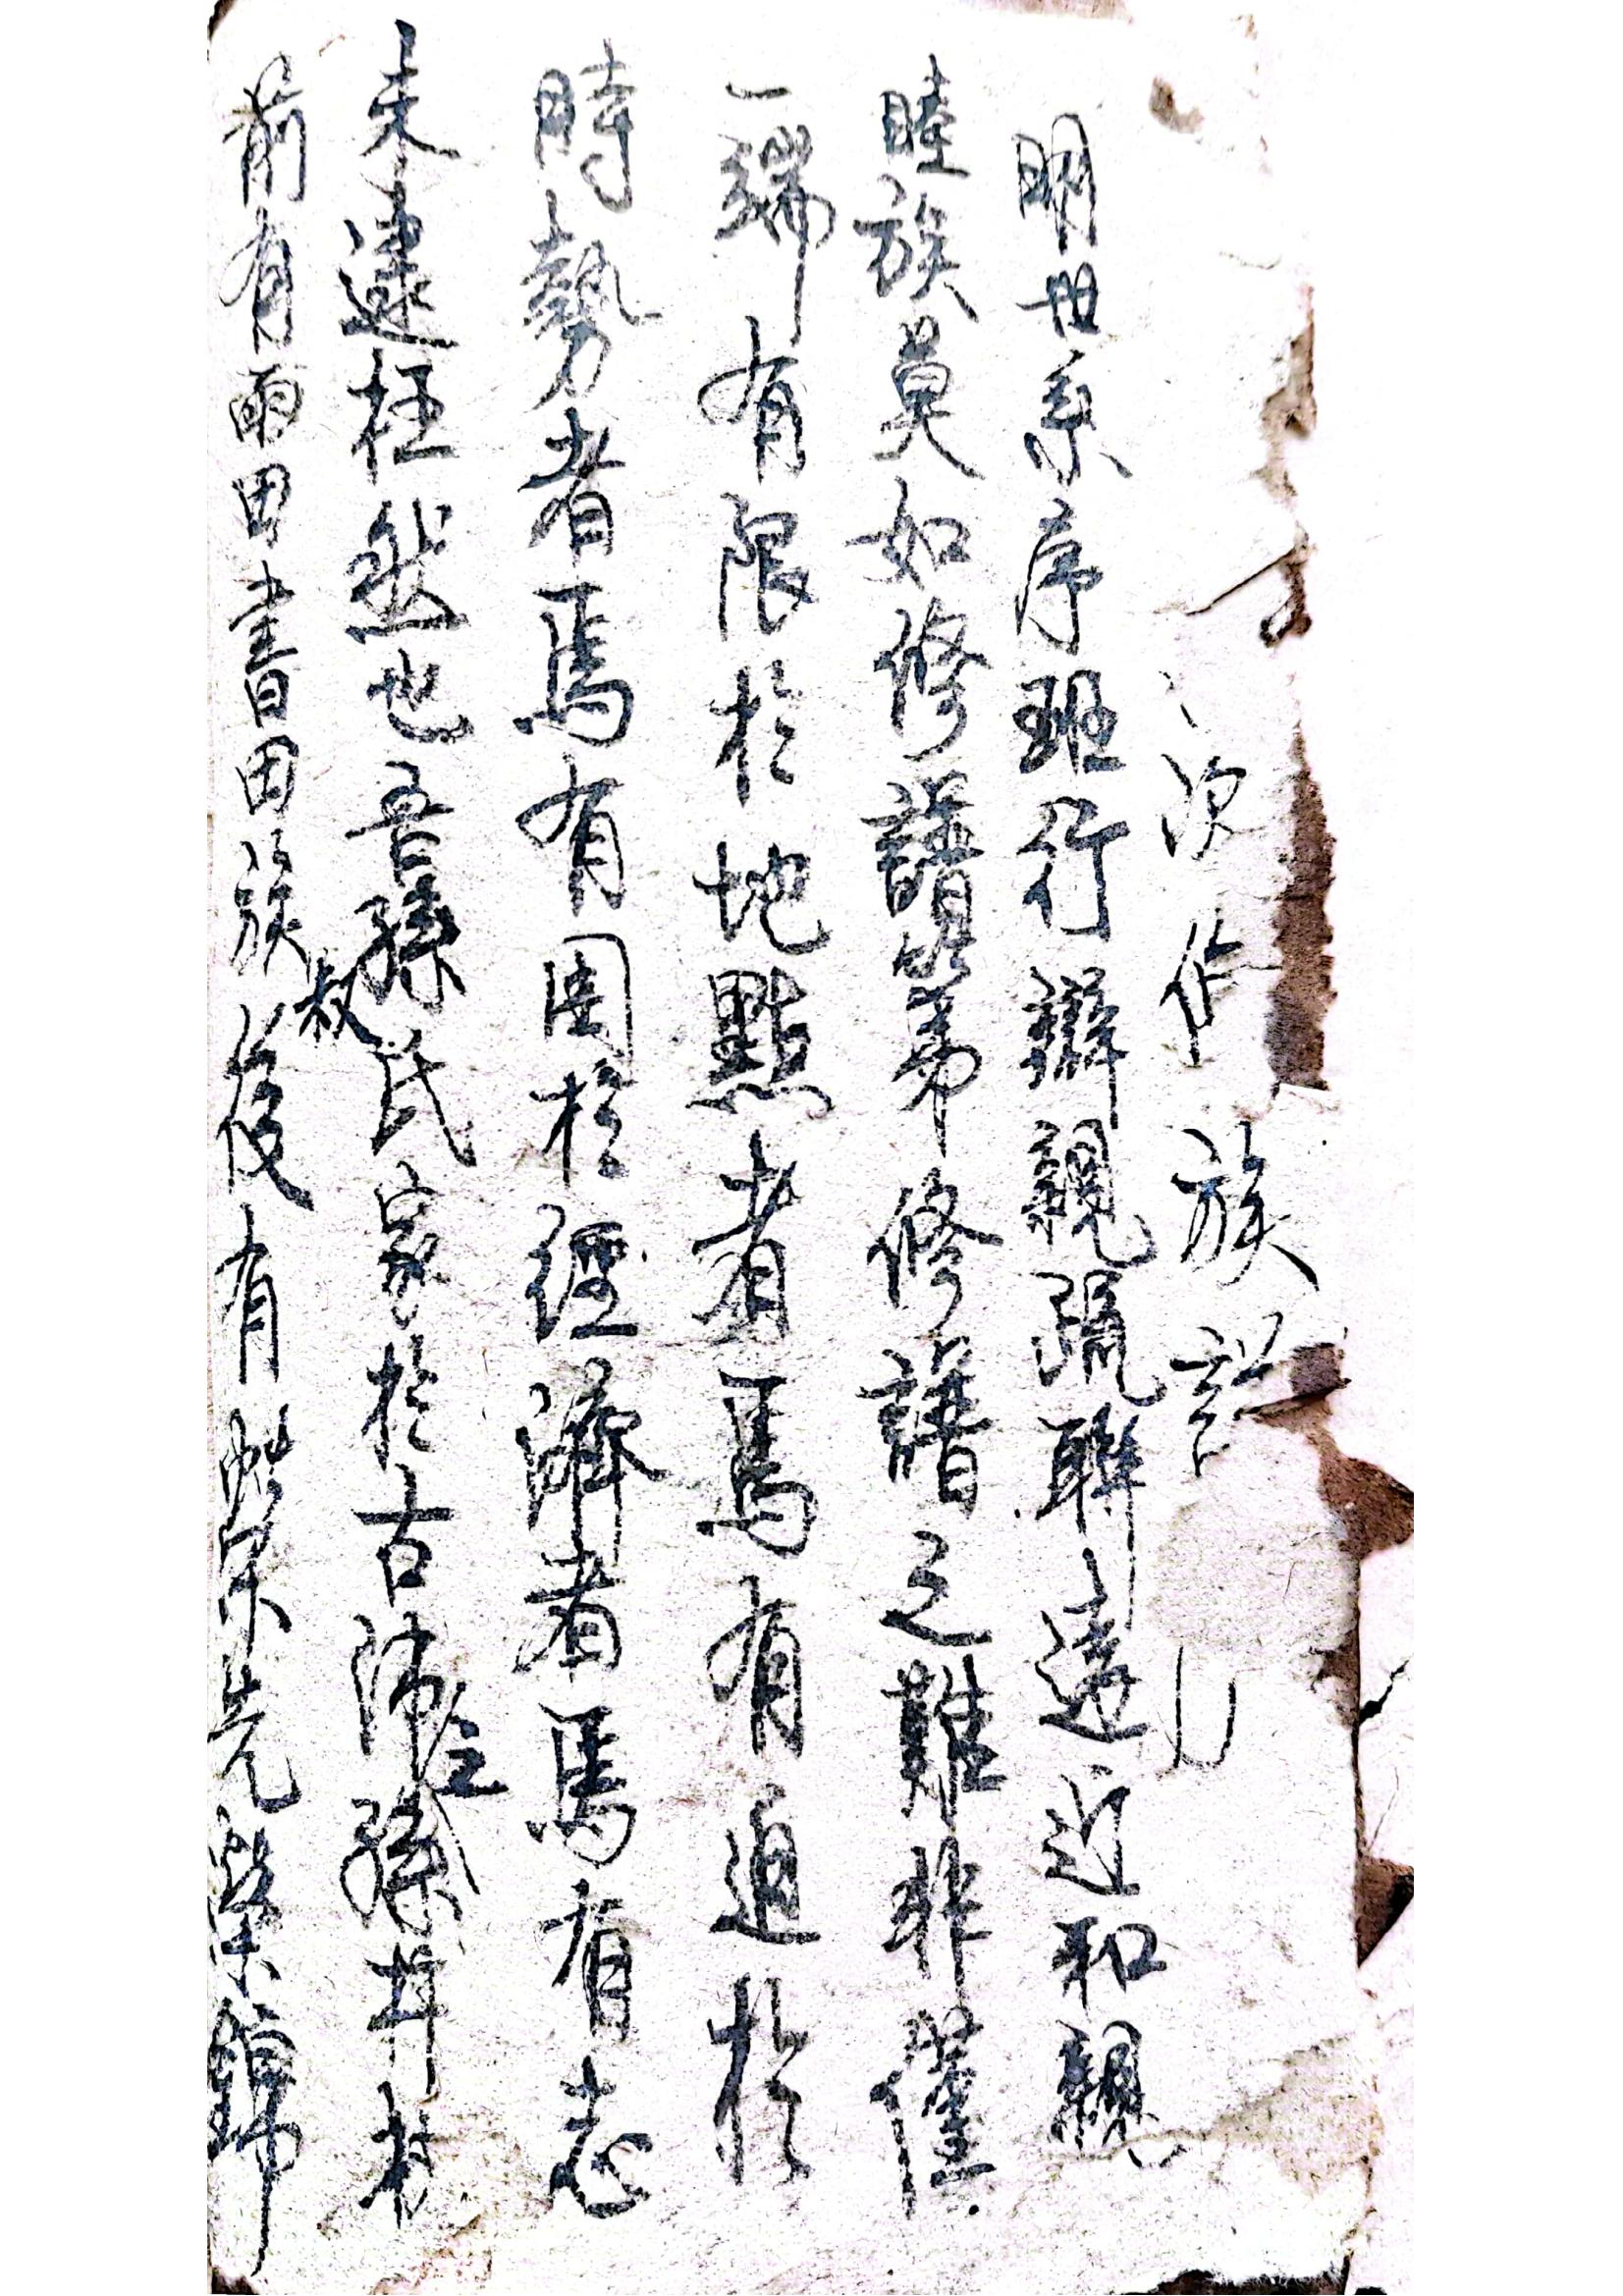 次作族譜
明世系序班行辯親疏聯遠近和親
睦族莫如修譜第修譜之難非僅
一端有限於地點者焉有迫於
時勢者焉有困於經濟者焉有志
未逮枉然也吾孫氏家於古沛之孫井村
前有雨田書田族叔後有榮先榮錦